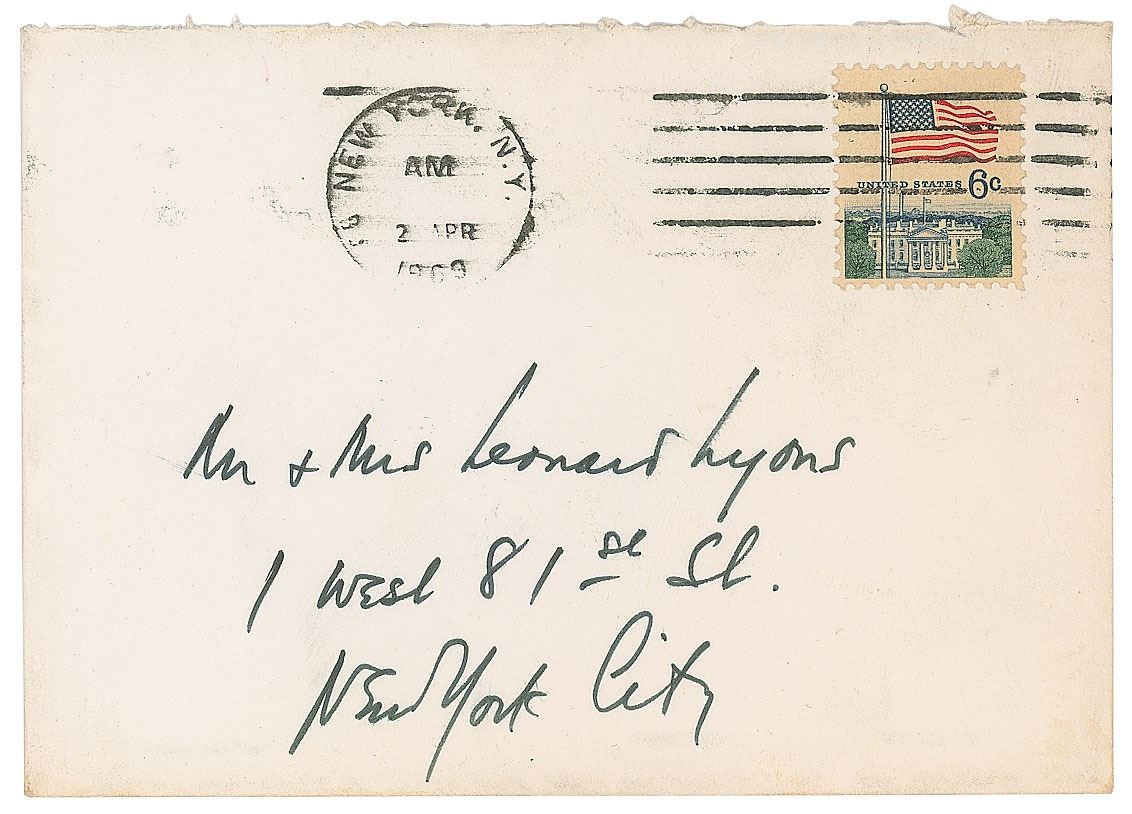 NEW YORK, N.Y.
AM
2 APR
1969
UNITED STATES 6c
Mr & Mrs Leonard Lyons
1 West 81st St.
New York City